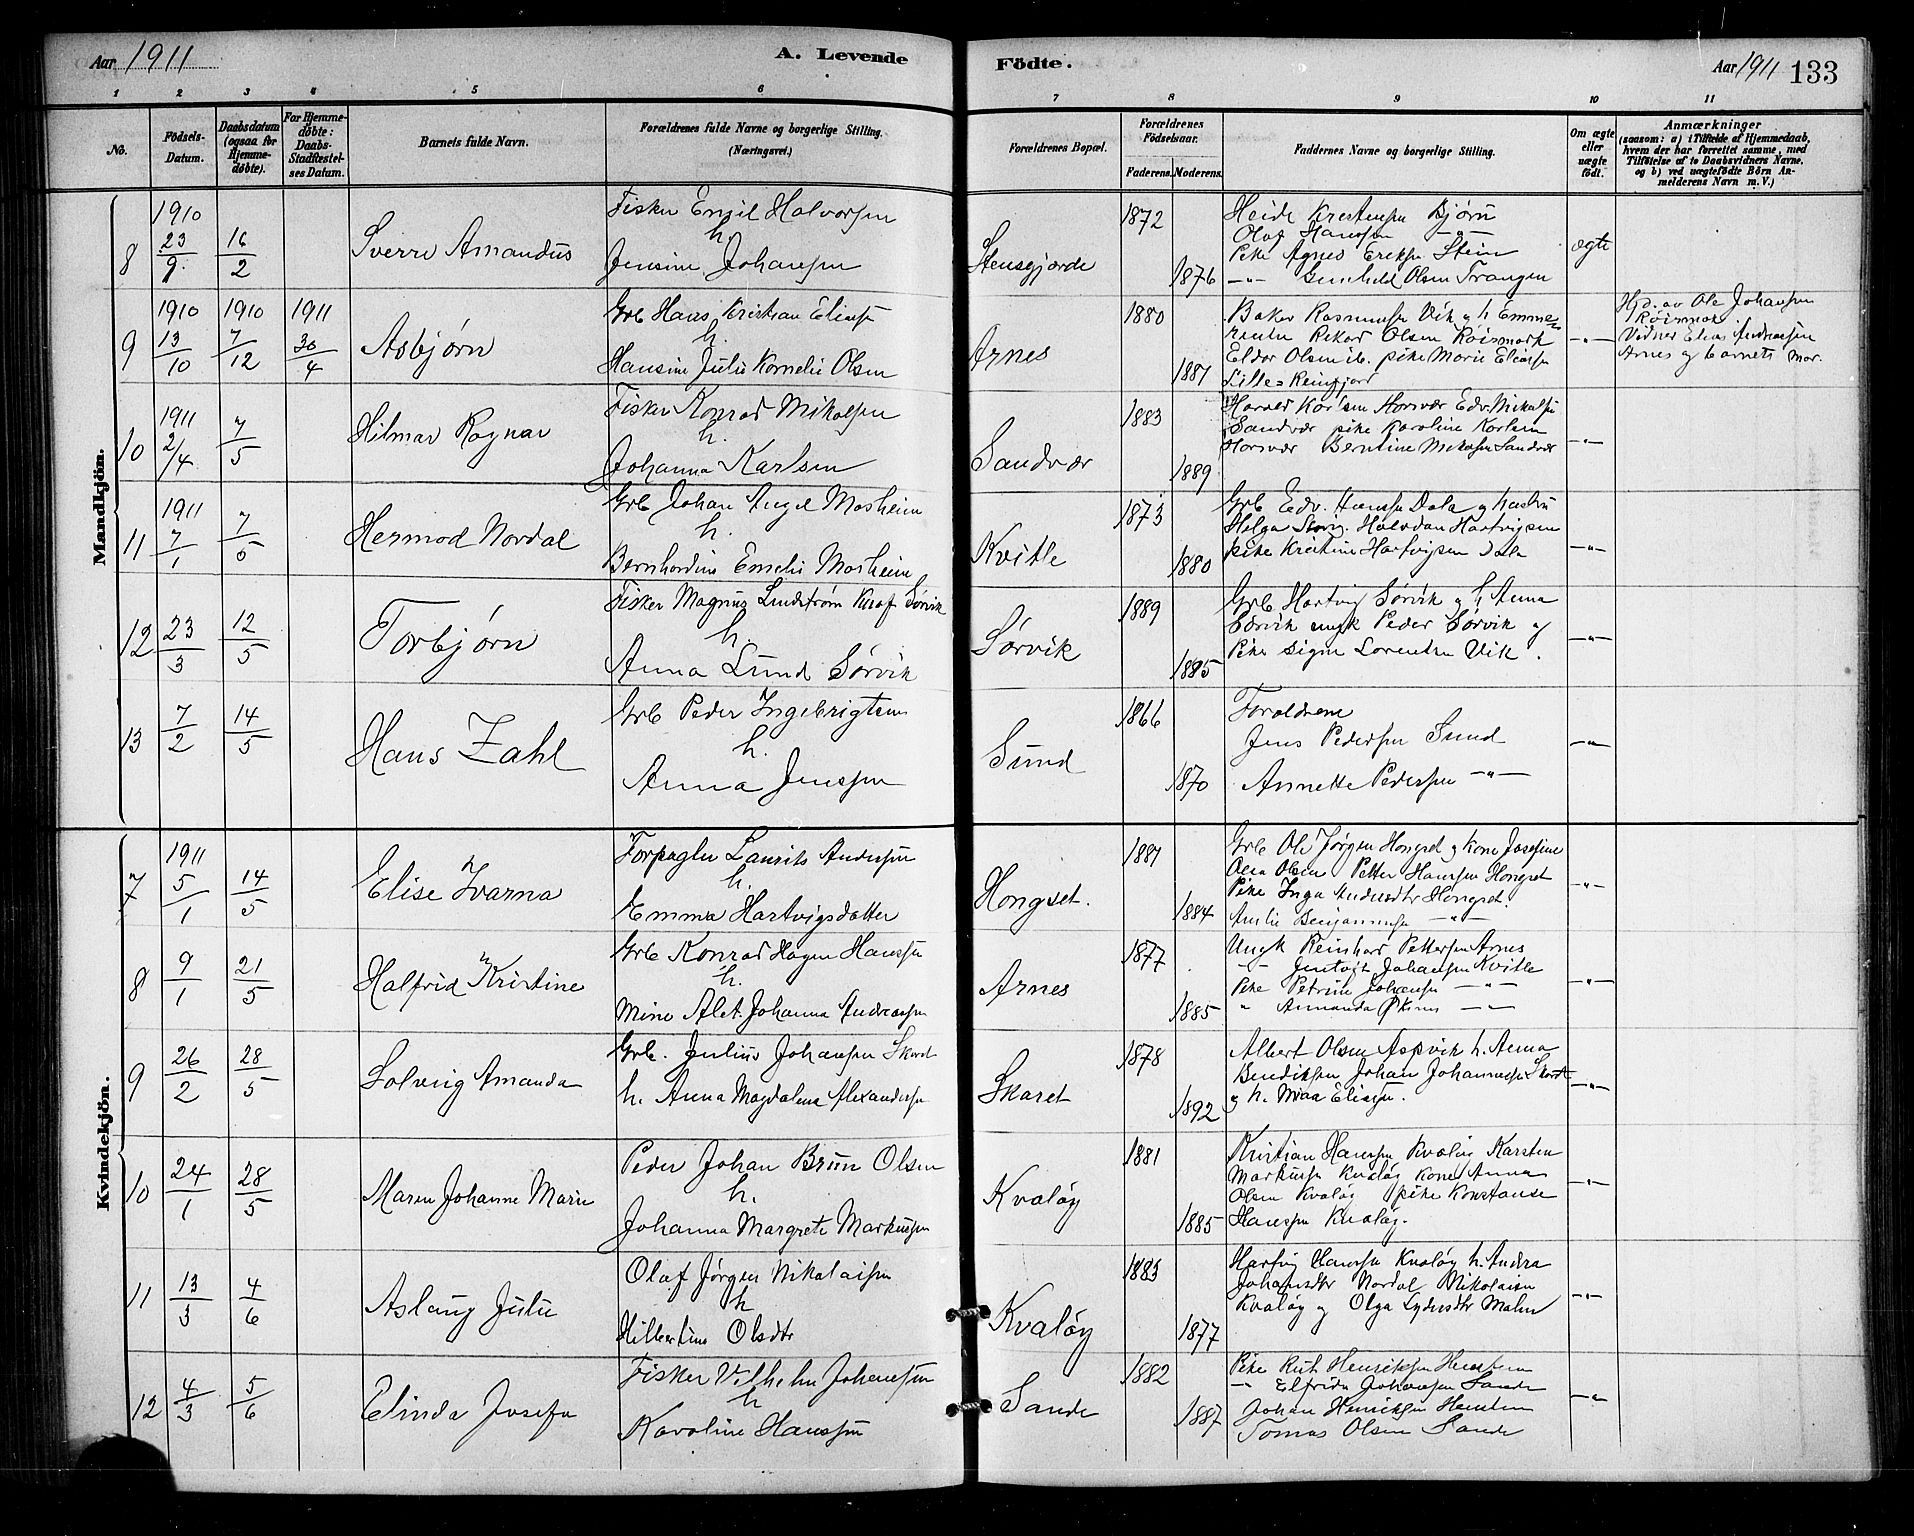 Aar 1911
A. Levende
Födte.
Aar 1911 133
1 2 3 4 5 6 7 8 9 10 11
No.
Födsels-
Datum.
Daabsdatum
(ogsaa for
Hjemme-
døbte).
For Hjemme-
døbte:
Daabs-
Stadfæstel-
ses Datum.
Barnets fulde Navn.
Forældrenes fulde Navne og borgerlige Stilling.
(Næringsvei.)
Forældrenes Bopæl.
Forældrenes
Födselsaar.
Faderens. Moderens.
Faddernes Navne og borgerlige Stilling.
Om ægte
eller
uægte
födt.
Anmærkninger
(saasom: a) i Tilfælde af Hjemmedaab,
hvem der har forrettet samme, med
Tilföielse af to Daabsvidners Navne,
og b) ved uægtefödte Börn An-
melderens Navn m. V.)
Mandkjön.
8 1910 23/9 16/2 Sverre Amandus
Fisker Emil Halvorsen
h.
Jensine Johansen
Stensgjorde 1872 1876
Heide Kristensen Bjørn
Olaf Hanssen —"—
Pike Agnes Eriksen Stein
—"— Gunhild Olsen Trangen
ægte
9 1910 13/10 1910 7/12 1911 30/4 Asbjørn
Grb Hans Kristian Eliassen
h.
Hansine Julie Kornelie Olsen
Arnes 1880 1887
Baker Rasmussen Vik og h Emme-
rentse Rikard Olsen Röismark
Eldor Olsen ib. pike Marie Eliassen
Lille-Reinfjord
—"—
Hjd. av Ole Johansen
Röismark
Vidner Elias Andreassen
Arnes og barnets Mor.
10 1911 2/4 7/5 Hilmar Ragnar
Fisker Konrad Mikalsen
h.
Johanna Karlsen
Sandvær 1883 1889
Harald Karlsen Horsvær Edv. Mikalsen
Sandvær pike Karoline Karlsen
Horsvær Berntine Mikalsen Sandvær
—"—
11 1911 7/1 7/5 Hermod Nordal
Grb Johan Angel Mosheim
h.
Bernhardine Emelie Mosheim
Kvitle 1873 1880
Grb Edv. Hanssen Dala og hustru
Helga Halvdan Hartvigsen
pike Kristine Hartvigsen Dala
—"—
12 23/3 12/5 Torbjørn
Fisker Magnus Lindstrøm Sørvik
h.
Anna Lund Sørvik
Sørvik 1889 1885
Grb Hartvig Sørvik og h Anna
Sørvik ungk Peder Sørvik og
Pike Signe Lorentsen Vik.
—"—
13 7/2 14/5 Hans Zahl
Grb Peder Ingebrigtsen
h.
Anna Jenssen
Sund 1866 1870
Forældrene
Jens Pedersen Sund
Annette Pedersen —"—
—"—
Kvindekjön.
7 1911 5/1 14/5 Elise Ivarna
Forpagter Laurits Andersen
h.
Emma Hartvigsdatter
Hongset. 1881 1884
Grb Ole Jørgen Hongset og Kone Josefine
Olea Olsen Petter Hanssen Hongset
Pike Inga Hongset.
Amlie Benjaminsen —"—
—"—
8 9/1 21/5 Halfrid Kristine
Grb Konrad Hagen Hanssen
h.
Mine Alet. Johanna Andreassen
Arnes 1877 1885
Ungk Reinhard Pettersen Arnes
—"— Johansen Kvitle
Pike Petrine Johansen —"—
" Amanda —"—
—"—
9 26/2 28/5 Solveig Amanda
Grb. Julius Johansen Skaret
h. Anna Magdalena Alexandersen
Skaret 1878 1892
Albert Olsen Aspvik h. Anna
Bendiksen Johan Johannessen Skaret
og h. Mina Eliassen.
—"—
10 24/1 28/5 Maren Johanne Marie
Peder Johan Brun Olsen
h.
Johanna Margrete Markussen
Kvaløy 1881 1885
Kristian Hanssen Kvaløy Karsten
Markussen Kvaløy Kone Anna
Olsen Kvaløy pike Konstanse
Hanssen Kvaløy.
—"—
11 13/3 4/6 Aslaug Julie
Olaf Jørgen Nikolaisen
h
Hilbertine Olsdtr
Kvaløy 1883 1877
Hartvig Hanssen Kvaløy h. Andra
Johansdtr Nordal Nikolaisen
Kvaløy og Olga Malm
—"—
12 4/3 5/6 Elinda Josefa
Fisker Vilhelm Johanssen
h
Karoline Hanssen
Sande 1882 1887
Pike Rut Henriksen
—"— Elfrida Johansen Sande
Johan Henriksen
Tomas Olsen Sande
—"—